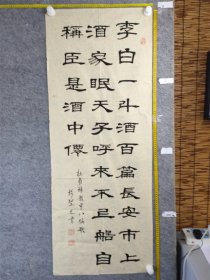 李白一斗酒百篇長安市上
酒家眠天子呼來不上船自
稱臣是酒中僊